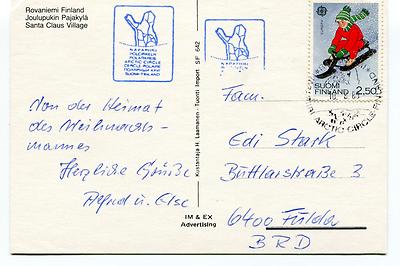 Rovaniemi Finland
Joulupukin Pajakylä
Santa Claus Village
NAPAPIIRI
POLCIRKELN
POLARKREIS
ARCTIC CIRCLE
CERCLE POLAIRE
SUOMI-FINLAND
NAPAPIIRI
SUOMI
FINLAND 2,50
ARCTIC CIRCLE
Von der Heimat
des Weihnachts-
mannes
Herzliche Grüße
Alfred u. Else
Kustantaja H. Laamanen - Tuonti Import SF 642
IM & EX
Advertising
Fam.
Edi Stark
Büttlarstraße 3
6400 Fulda
BRD